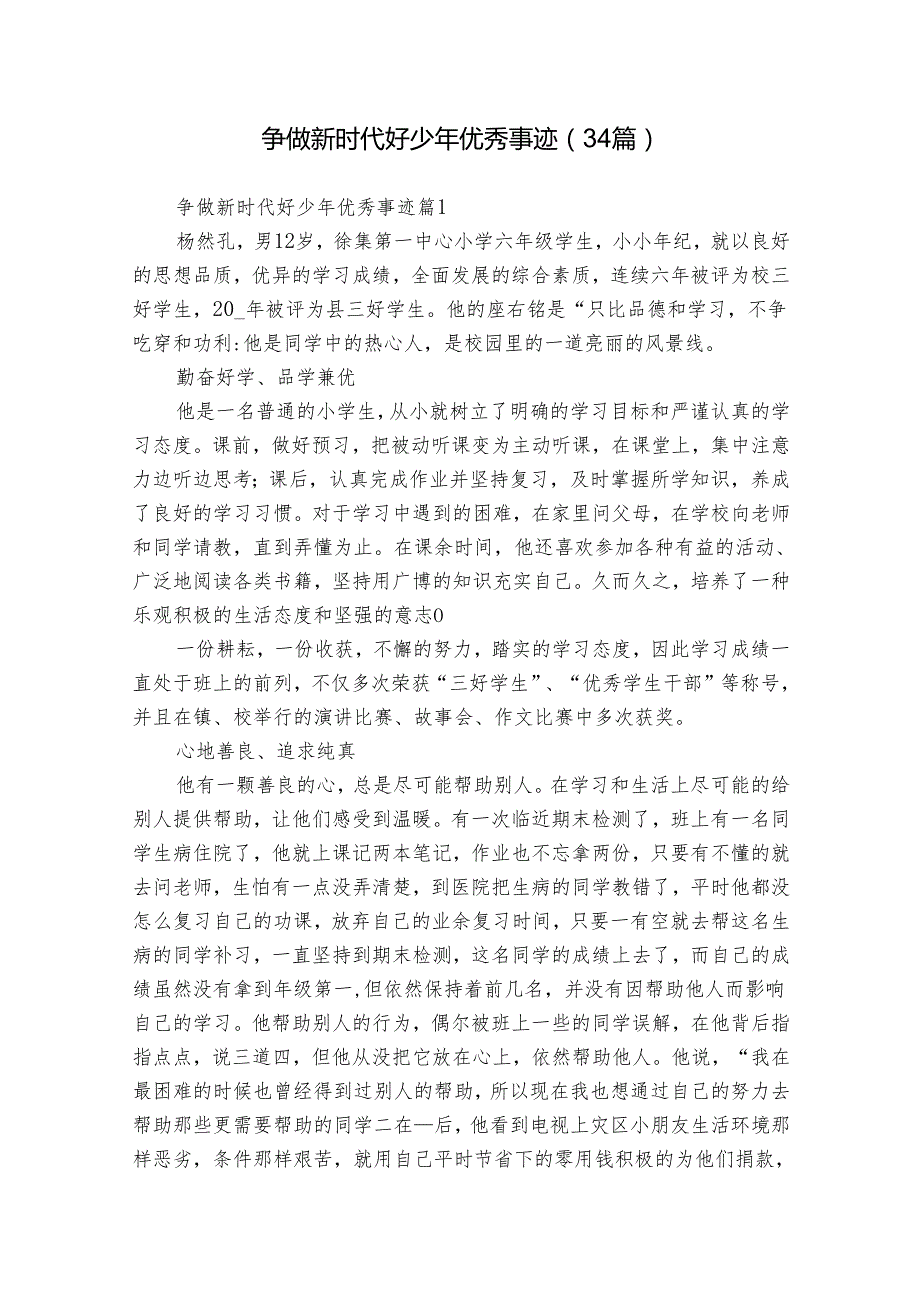 争做新时代好少年优秀事迹（34篇）
争做新时代好少年优秀事迹篇1
杨然孔，男12岁，徐集第一中心小学六年级学生，小小年纪，就以良好
的思想品质，优异的学习成绩，全面发展的综合素质，连续六年被评为校三
好学生，20_年被评为县三好学生。他的座右铭是“只比品德和学习，不争
吃穿和功利:他是同学中的热心人，是校园里的一道亮丽的风景线。
勤奋好学、品学兼优
他是一名普通的小学生，从小就树立了明确的学习目标和严谨认真的学
习态度。课前，做好预习，把被动听课变为主动听课，在课堂上，集中注意
力边听边思考；课后，认真完成作业并坚持复习，及时掌握所学知识，养成
了良好的学习习惯。对于学习中遇到的困难，在家里问父母，在学校向老师
和同学请教，直到弄懂为止。在课余时间，他还喜欢参加各种有益的活动、
广泛地阅读各类书籍，坚持用广博的知识充实自己。久而久之，培养了一种
乐观积极的生活态度和坚强的意志0
一份耕耘，一份收获，不懈的努力，踏实的学习态度，因此学习成绩一
直处于班上的前列，不仅多次荣获“三好学生”、“优秀学生干部”等称号，
并且在镇、校举行的演讲比赛、故事会、作文比赛中多次获奖。
心地善良、追求纯真
他有一颗善良的心，总是尽可能帮助别人。在学习和生活上尽可能的给
别人提供帮助，让他们感受到温暖。有一次临近期末检测了，班上有一名同
学生病住院了，他就上课记两本笔记，作业也不忘拿两份，只要有不懂的就
去问老师，生怕有一点没弄清楚，到医院把生病的同学教错了，平时他都没
怎么复习自己的功课，放弃自己的业余复习时间，只要一有空就去帮这名生
病的同学补习，一直坚持到期末检测，这名同学的成绩上去了，而自己的成
绩虽然没有拿到年级第一,但依然保持着前几名，并没有因帮助他人而影响
自己的学习。他帮助别人的行为，偶尔被班上一些的同学误解，在他背后指
指点点，说三道四，但他从没把它放在心上，依然帮助他人。他说，“我在
最困难的时候也曾经得到过别人的帮助，所以现在我也想通过自己的努力去
帮助那些更需要帮助的同学二在—后，他看到电视上灾区小朋友生活环境那
样恶劣，条件那样艰苦，就用自己平时节省下的零用钱积极的为他们捐款，